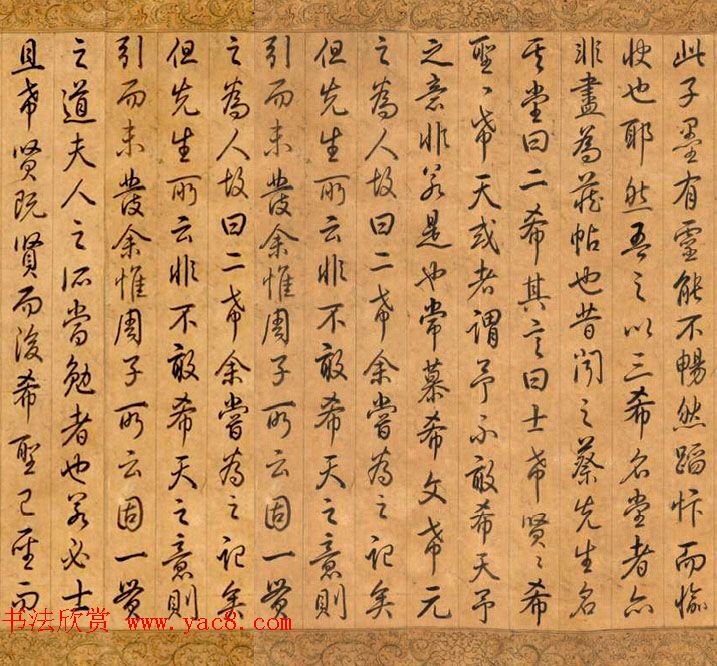 此子墨有靈能不暢然蹈忭而愉
快也耶然吾之以三希名堂者亦
非盡為藏帖也昔聞之蔡先生名
其堂曰二希其言曰士希賢〻希
聖〻希天或者謂予不敢希天予
之意非若是也常慕希文希元
之為人故曰二希余嘗為之記矣
但先生所云非不敢希天之意則
引而未發余惟周子所云固一貫
之為人故曰二希余嘗為之記矣
但先生所云非不敢希天之意則
引而未發余惟周子所云固一貫
之道夫人之所當勉者也若必士
且希賢既賢而後希聖已聖而
书法欣赏 www.yac8.com